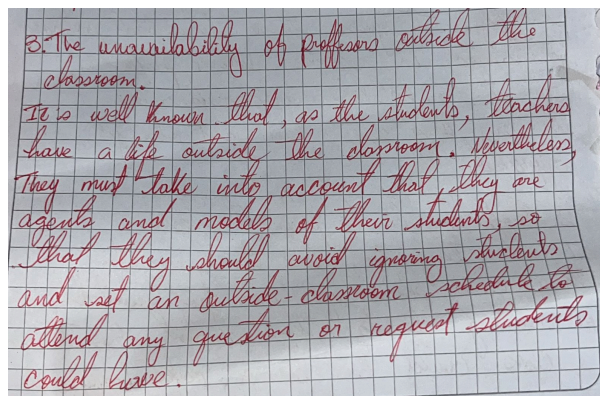 3. The unavailability of proffesors outside the
classroom.
It is well known that, as the students, teachers
have a life outside the classroom. Nevertheless,
They must take into account that they are
agents and models of their students, so
that they should avoid ignoring students
and set an outside-classroom schedule to
attend any question or request students
could have.